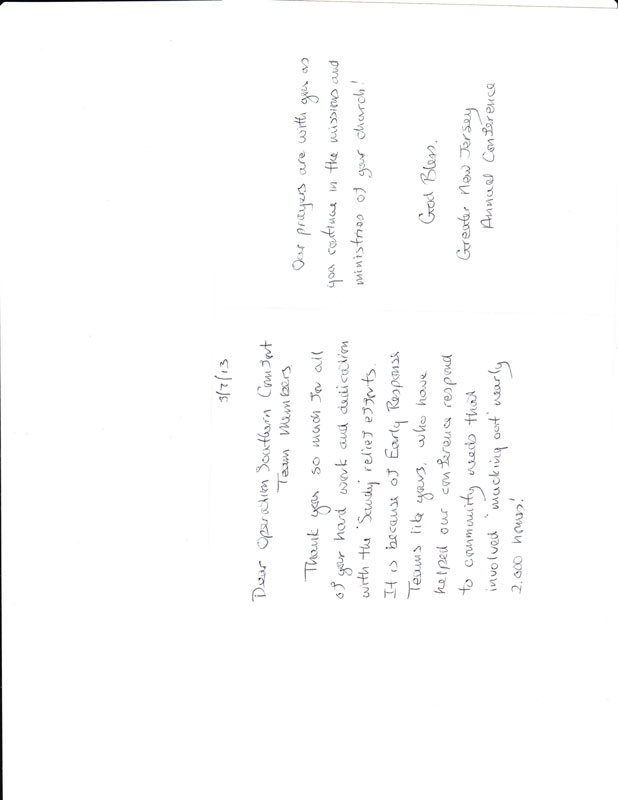 3/7/13
Dear Operation Southern Comfort
Team Members
Thank you so much for all
of your hard work and dedication
with the 'Sandy' relief efforts.
It is because of Early Response
Teams like yours, who have
helped our conference respond
to community needs that
involved 'mucking out' nearly
2,000 homes!
Our prayers are with you as
you continue in the missions and
ministries of your church!
God Bless,
Greater New Jersey
Annual Conference